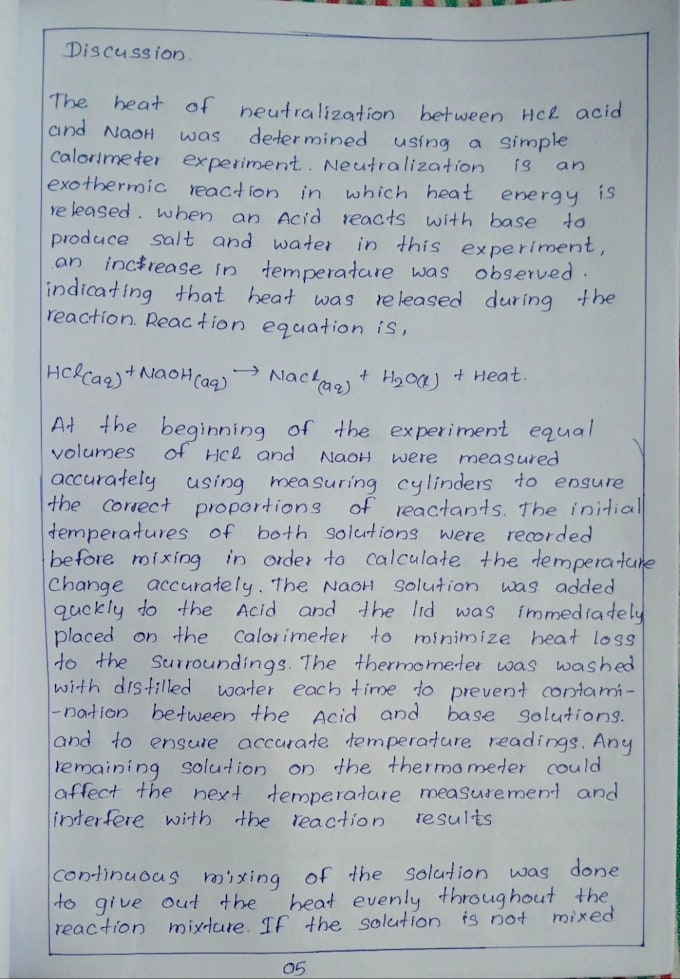 Discussion.
The heat of neutralization between HCl acid
and NaOH was determined using a simple
calorimeter experiment. Neutralization is an
exothermic reaction in which heat energy is
released. when an Acid reacts with base to
produce salt and water in this experiment,
an increase in temperature was observed.
indicating that heat was released during the
reaction. Reaction equation is,
HCl(aq) + NaOH(aq) → NaCl(aq) + H2O(l) + Heat.
At the beginning of the experiment equal
volumes of HCl and NaOH were measured
accurately using measuring cylinders to ensure
the correct proportions of reactants. The initial
temperatures of both solutions were recorded
before mixing in order to calculate the temperature
Change accurately. The NaOH solution was added
quckly to the Acid and the lid was immediately
placed on the calorimeter to minimize heat loss
to the surroundings. The thermometer was washed
with distilled water each time to prevent contami-
-nation between the Acid and base solutions.
and to ensure accurate temperature readings. Any
remaining solution on the thermometer could
affect the next temperature measurement and
interfere with the reaction results
continuous mixing of the solution was done
to give out the heat evenly throughout the
reaction mixture. If the solution is not mixed
05